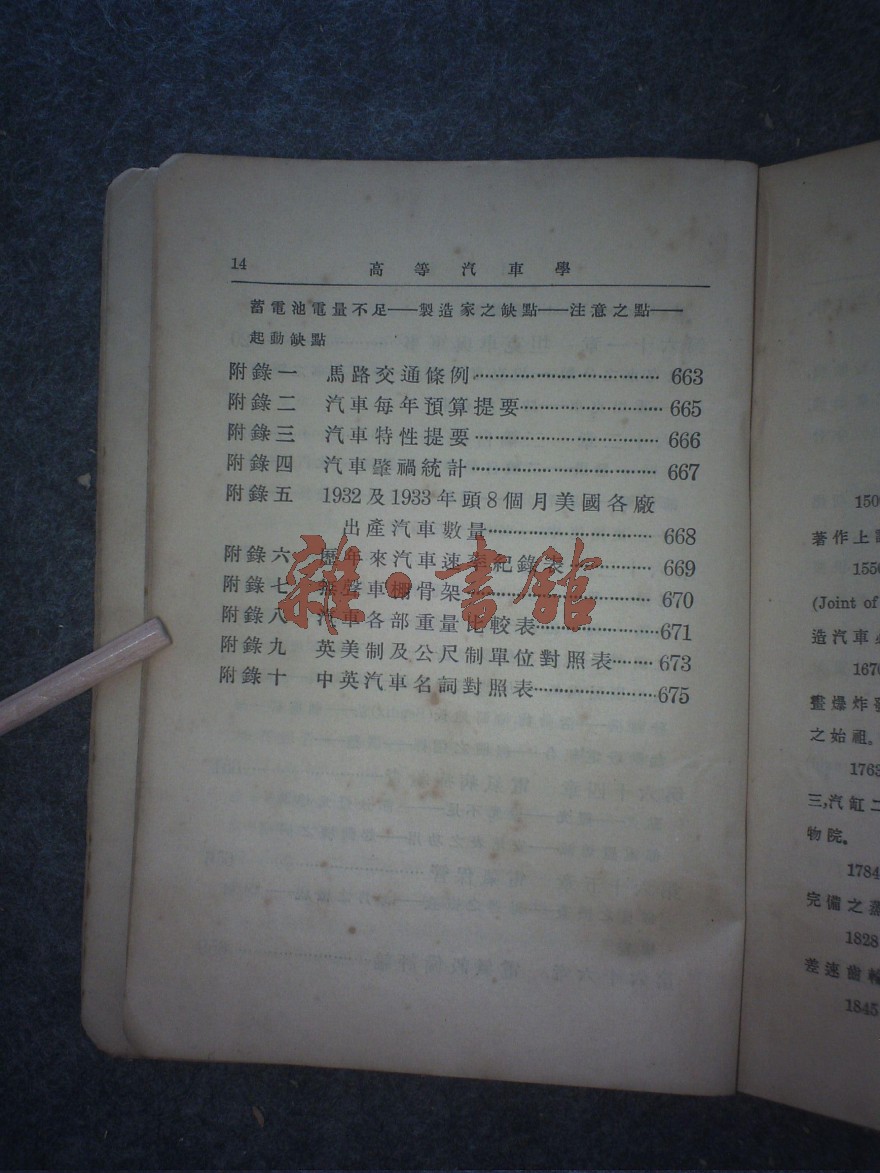 14 高等汽車學
蓄電池電量不足——製造家之缺點——注意之點——
起動缺點
附錄一 馬路交通條例 663
附錄二 汽車每年預算提要 665
附錄三 汽車特性提要 666
附錄四 汽車肇禍統計 667
附錄五 1932及1933年頭8個月美國各廠
出產汽車數量 668
附錄六 歷年來汽車速率紀錄表 669
附錄七 無聲車棚骨架 670
附錄八 汽車各部重量比較表 671
附錄九 英美制及公尺制單位對照表 673
附錄十 中英汽車名詞對照表 675
雜·書館
150
著作上
1550
(Joint of
造汽車
1670
畫爆炸
之始祖。
1763
三,汽缸二
物院。
1784
完備之蒸
1828
差速齒輪
1845